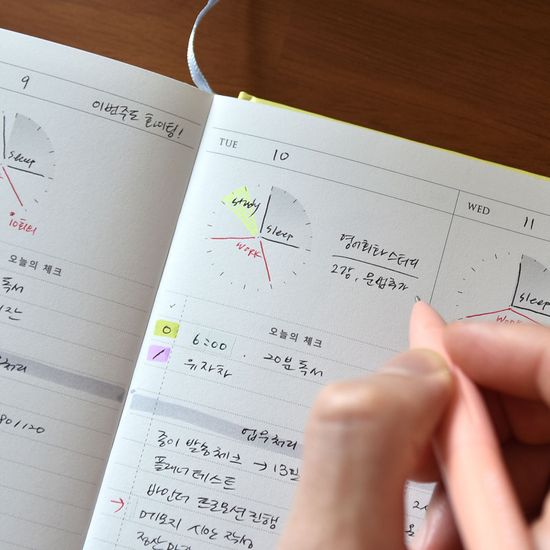 9
이번주도 화이팅!
sleep
오늘의 체크
독서
80/120
TUE 10
study
sleep
work
영어회화 스터디
2강, 문법추가
오늘의 체크
6:00 · 20분 독서
유자차
업무처리
종이 발송체크 → 13일
플래너 테스트
→ 바인더 프로모션 진행
메모지 시안 작성
WED 11
sleep
work